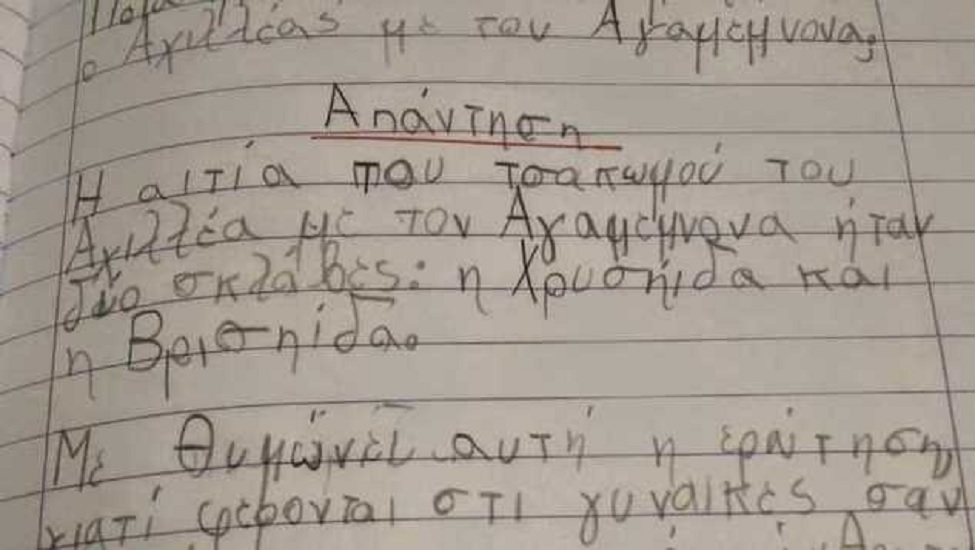 ο Αχιλλέας με τον Αγαμέμνονα;
Απάντηση
Η αιτία που τσακωμού του
Αχιλλέα με τον Αγαμέμνονα ήταν
δύο σκλάβες: η Χρυσηίδα και
η Βρισηίδα.
Με θυμώνει αυτή η ερώτηση,
γιατί φέρονται στι γυναίκες σαν